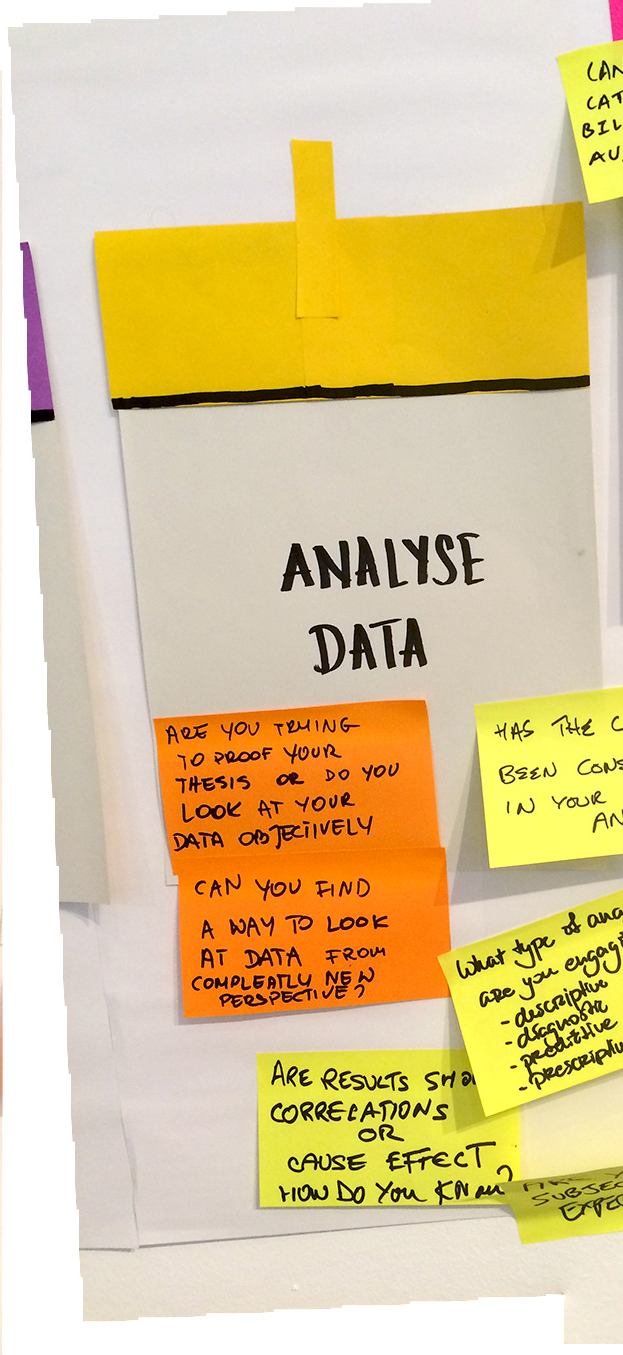 CAN
CAT
BIL
AU
ANALYSE
DATA
ARE YOU TRYING
TO PROOF YOUR
THESIS OR DO YOU
LOOK AT YOUR
DATA OBJECTIVELY
CAN YOU FIND
A WAY TO LOOK
AT DATA FROM
COMPLEATLY NEW
PERSPECTIVE?
HAS THE C
BEEN CONS
IN YOUR
AN
What type of ana
are you engagi
- descriptive
- diagnostic
- predictive
- prescriptive
ARE RESULTS SHO
CORRELATIONS
OR
CAUSE EFFECT
HOW DO YOU KNOW?
SUBJEC
EXPER